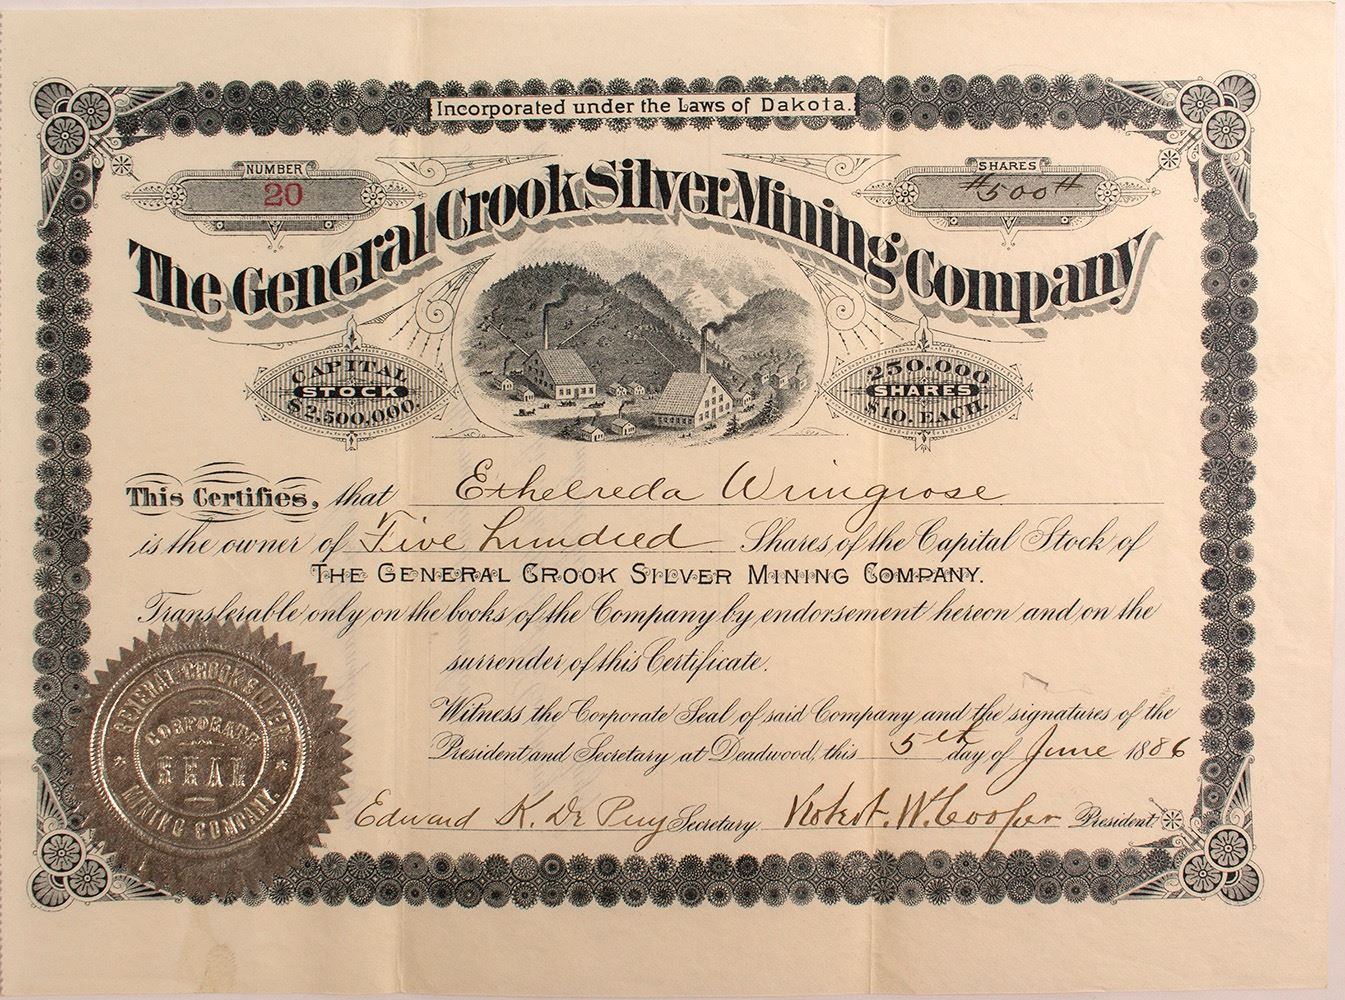 Incorporated under the Laws of Dakota.
NUMBER
20
SHARES
#500#
The General Crook Silver Mining Company
CAPITAL
STOCK
$2,500,000.
250.000
SHARES
$10. EACH.
This Certifies, that Ethelreda Wringrose
is the owner of Five hundred Shares of the Capital Stock of
THE GENERAL CROOK SILVER MINING COMPANY.
Transferable only on the books of the Company by endorsement hereon and on the
surrender of this Certificate.
Witness the Corporate Seal of said Company and the signatures of the
President and Secretary at Deadwood, this 5th day of June 1886
Edward K. De Puy Secretary. Robert. W. Cooper President.
GENERAL CROOK SILVER
CORPORATE
SEAL
MINING COMPANY.